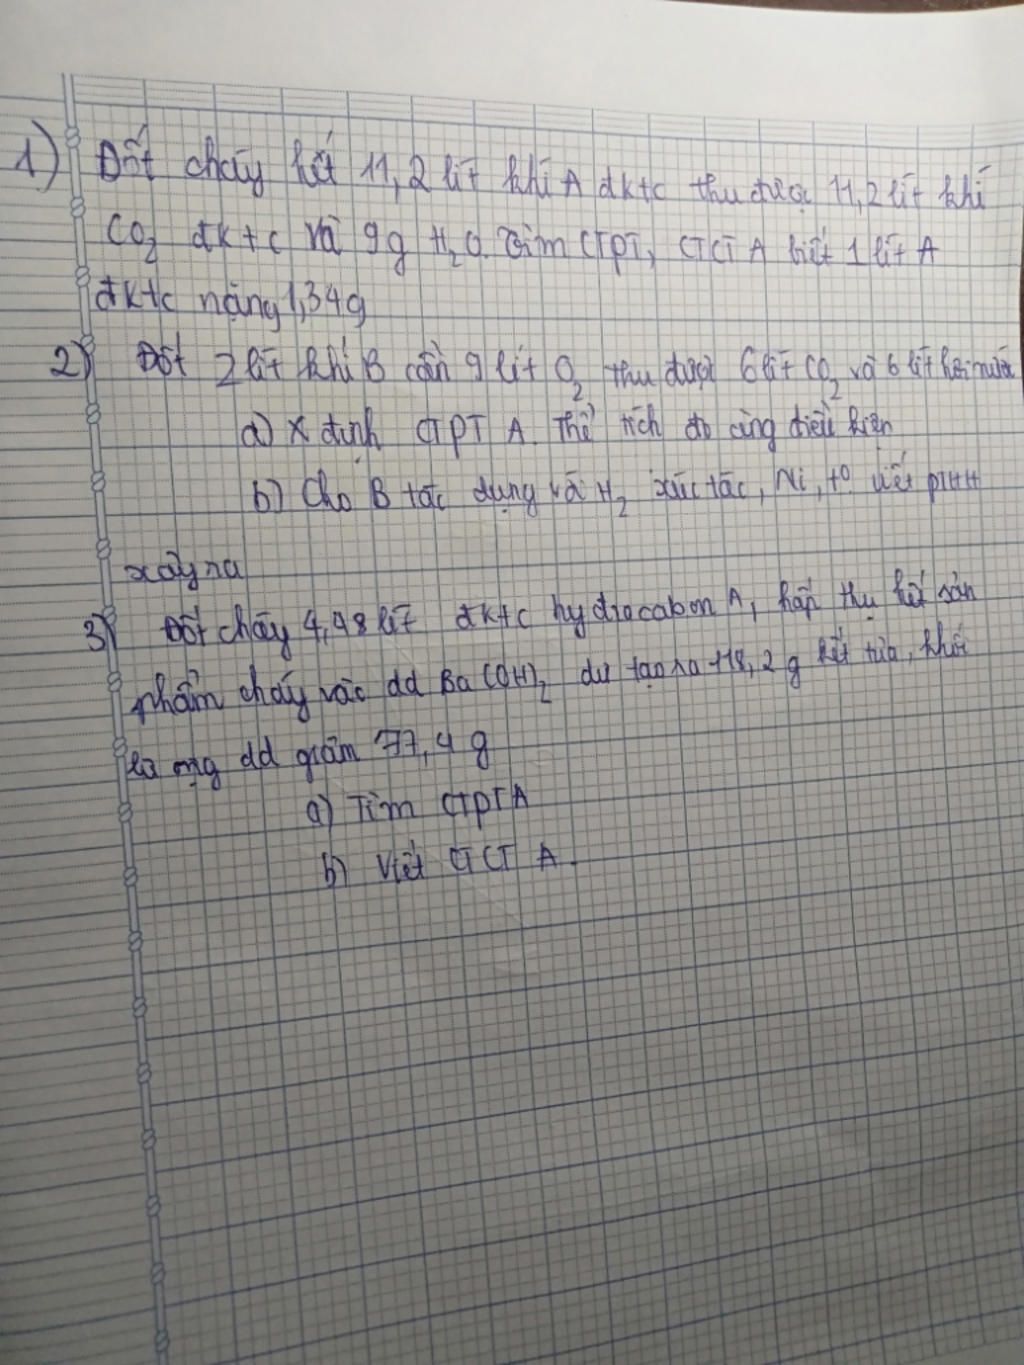 1) Đốt cháy hết 11,2 lít khí A đktc thu được 11,2 lít khí
CO2 đktc và 9g H2O. Tìm CTPT, CTCT A biết 1 lít A
đktc nặng 1,34g
2) Đốt 2 lít khí B cần 9 lít O2 thu được 6 lít CO2 và 6 lít hơi nước
a) X định CTPT A. Thể tích đo cùng điều kiện
b) Cho B tác dụng và H2 xúc tác, Ni, t° viết PTHH
xảy ra
3) Đốt cháy 4,48 lít đktc hydrocabon A, hấp thụ hết sản
phẩm cháy vào dd Ba(OH)2 dư tạo ra 118,2 g kết tủa, khối
lượng dd giảm 77,4 g
a) Tìm CTPT A
b) Viết CTCT A.